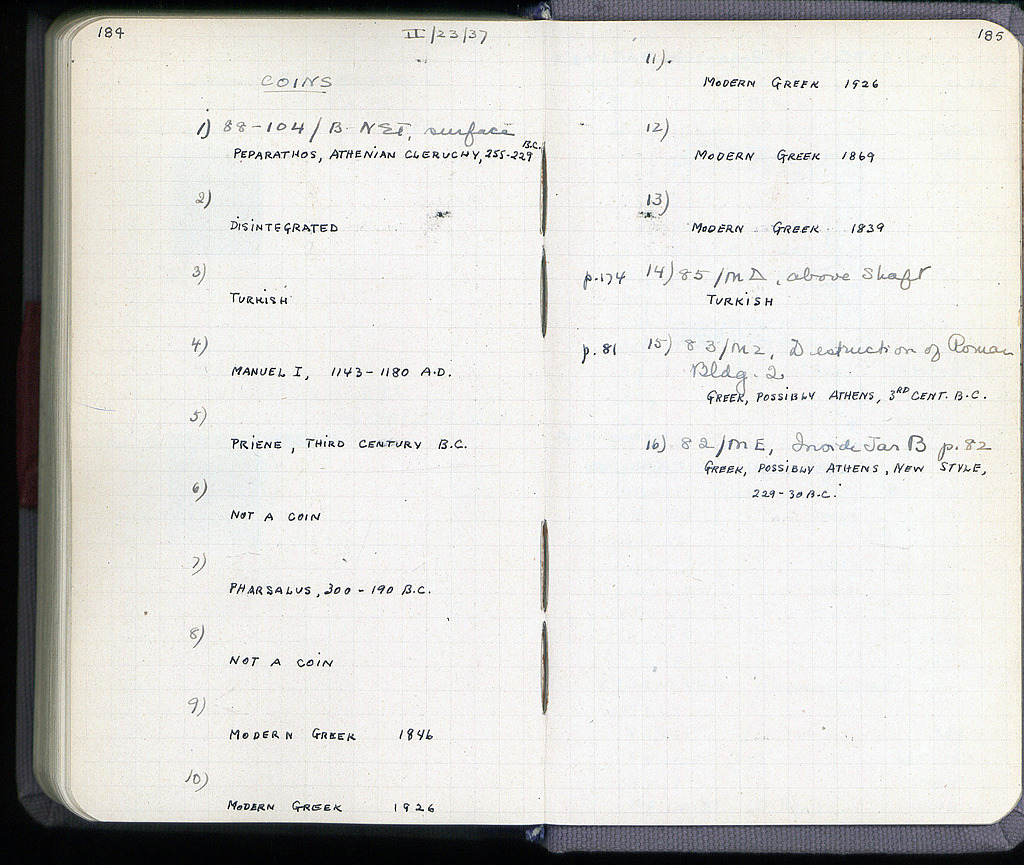 184
II/23/37
COINS
1) 88-104/B-NET, surface
PEPARATHOS, ATHENIAN CLERUCHY, 255-229 B.C.
2)
DISINTEGRATED
3)
TURKISH
4)
MANUEL I, 1143-1180 A.D.
5)
PRIENE, THIRD CENTURY B.C.
6)
NOT A COIN
7)
PHARSALUS, 300-190 B.C.
8)
NOT A COIN
9)
MODERN GREEK 1846
10)
MODERN GREEK 1926
185
11).
MODERN GREEK 1926
12)
MODERN GREEK 1869
13)
MODERN GREEK 1839
p.174 14) 85/MΔ, above Shaft
TURKISH
p. 81 15) 83/MZ, Destruction of Roman
Bldg. 2
GREEK, POSSIBLY ATHENS, 3RD CENT. B.C.
16) 82/ME, Inside Jar B p.82
GREEK, POSSIBLY ATHENS, NEW STYLE,
229-30 B.C.